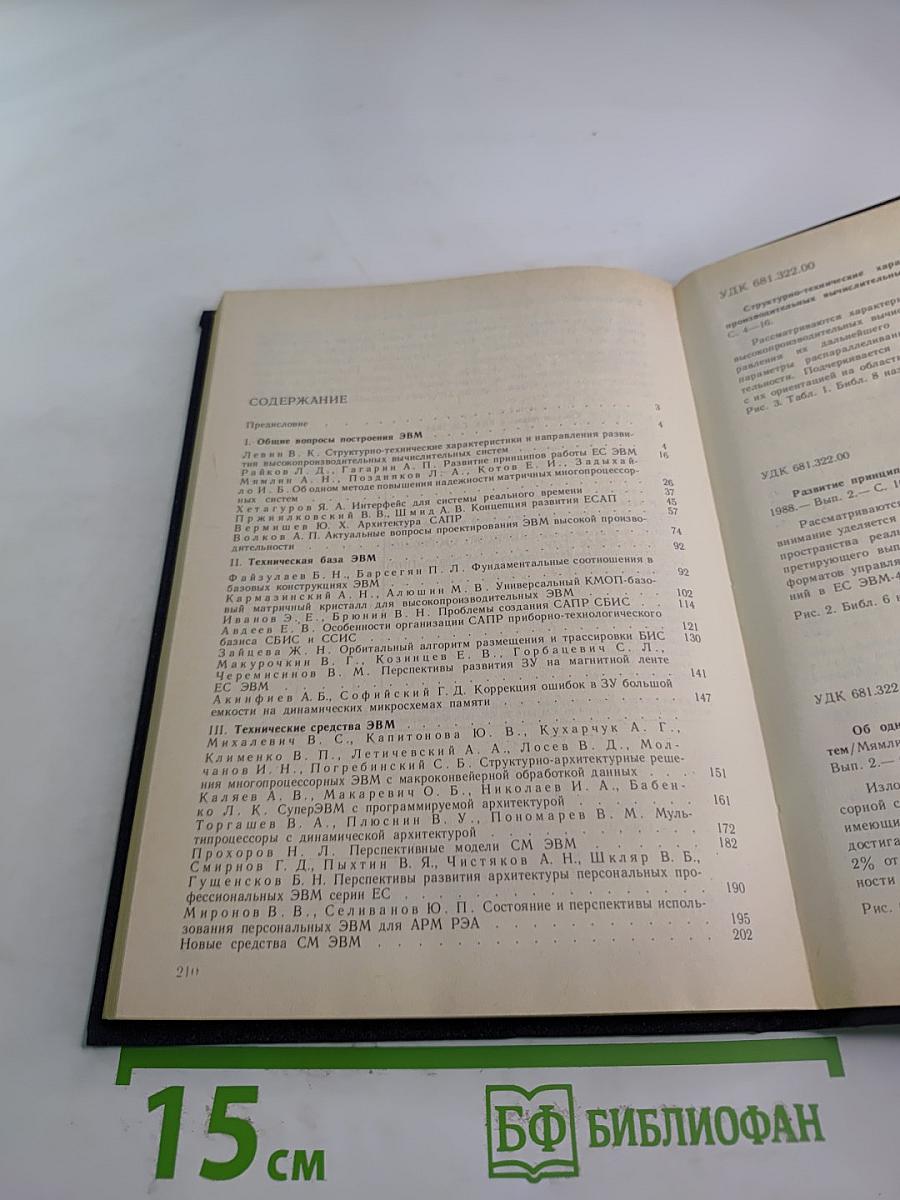 СОДЕРЖАНИЕ
Предисловие . . . . . . . . . . 3
I. Общие вопросы построения ЭВМ . . . . . . . . 4
Левин В. К. Структурно-технические характеристики и направления разви-
тия высокопроизводительных вычислительных систем . . . . . 4
Райков Л. Д., Гагарин А. П. Развитие принципов работы ЕС ЭВМ 16
Мямлин А. Н., Поздняков Л. А., Котов Е. И., Задыхай-
ло И. Б. Об одном методе повышения надежности матричных многопроцессор-
ных систем . . . . . . . . . . 26
Хетагуров Я. А. Интерфейс для системы реального времени . . . 37
Пржиялковский В. В., Шмид А. В. Концепция развития ЕСАП . . 45
Вермишев Ю. Х. Архитектура САПР . . . . . . 57
Волков А. П. Актуальные вопросы проектирования ЭВМ высокой произво-
дительности . . . . . . . . . . 74
II. Техническая база ЭВМ . . . . . . . . . 92
Файзулаев Б. Н., Барсегян П. Л. Фундаментальные соотношения в
базовых конструкциях ЭВМ . . . . . . . . 92
Кармазинский А. Н., Алюшин М. В. Универсальный КМОП-базо-
вый матричный кристалл для высокопроизводительных ЭВМ . . . 102
Иванов Э. Е., Брюнин В. Н. Проблемы создания САПР СБИС . . 114
Авдеев Е. В. Особенности организации САПР приборно-технологического
базиса СБИС и ССИС . . . . . . . . 121
Зайцева Ж. Н. Орбитальный алгоритм размещения и трассировки БИС 130
Макурочкин В. Г., Козинцев Е. В., Горбацевич С. Л.,
Черемисинов В. М. Перспективы развития ЗУ на магнитной ленте
ЕС ЭВМ . . . . . . . . . . 141
Акинфиев А. Б., Софийский Г. Д. Коррекция ошибок в ЗУ большой
емкости на динамических микросхемах памяти . . . . . . 147
III. Технические средства ЭВМ . . . . . . . .
Михалевич В. С., Капитонова Ю. В., Кухарчук А. Г.,
Клименко В. П., Летичевский А. А., Лосев В. Д., Мол-
чанов И. Н., Погребинский С. Б. Структурно-архитектурные реше-
ния многопроцессорных ЭВМ с макроконвейерной обработкой данных . . . 151
Каляев А. В., Макаревич О. Б., Николаев И. А., Бабен-
ко Л. К. СуперЭВМ с программируемой архитектурой . . . . . 161
Торгашев В. А., Плюснин В. У., Пономарев В. М. Муль-
типроцессоры с динамической архитектурой . . . . . . . 172
Прохоров Н. Л. Перспективные модели СМ ЭВМ . . . . . 182
Смирнов Г. Д., Пыхтин В. Я., Чистяков А. Н., Шкляр В. Б.,
Гущенсков Б. Н. Перспективы развития архитектуры персональных про-
фессиональных ЭВМ серии ЕС . . . . . . . . 190
Миронов В. В., Селиванов Ю. П. Состояние и перспективы исполь-
зования персональных ЭВМ для АРМ РЭА . . . . . . . 195
Новые средства СМ ЭВМ . . . . . . . . . 202
210
УДК 681.322.00
Структурно-технические хара
производительных вычислительны
С. 4—16.
Рассматриваются характери
высокопроизводительных вычис
равления их дальнейшего
параметры распараллеливан
тельности. Подчеркивается
с их ориентацией на област
Рис. 3. Табл. 1. Библ. 8 наз
УДК 681.322.00
Развитие принцип
1988.— Вып. 2.— С. 1
Рассматриваются
внимание уделяется
пространства реаль
претирующего вып
форматов управля
ний в ЕС ЭВМ-4
Рис. 2. Библ. 6 н
УДК 681.322
Об одн
тем/Мямли
Вып. 2.—
Изло
сорной с
имеющи
достига
2% от
ности
Рис.
15 см
БФ БИБЛИОФАН